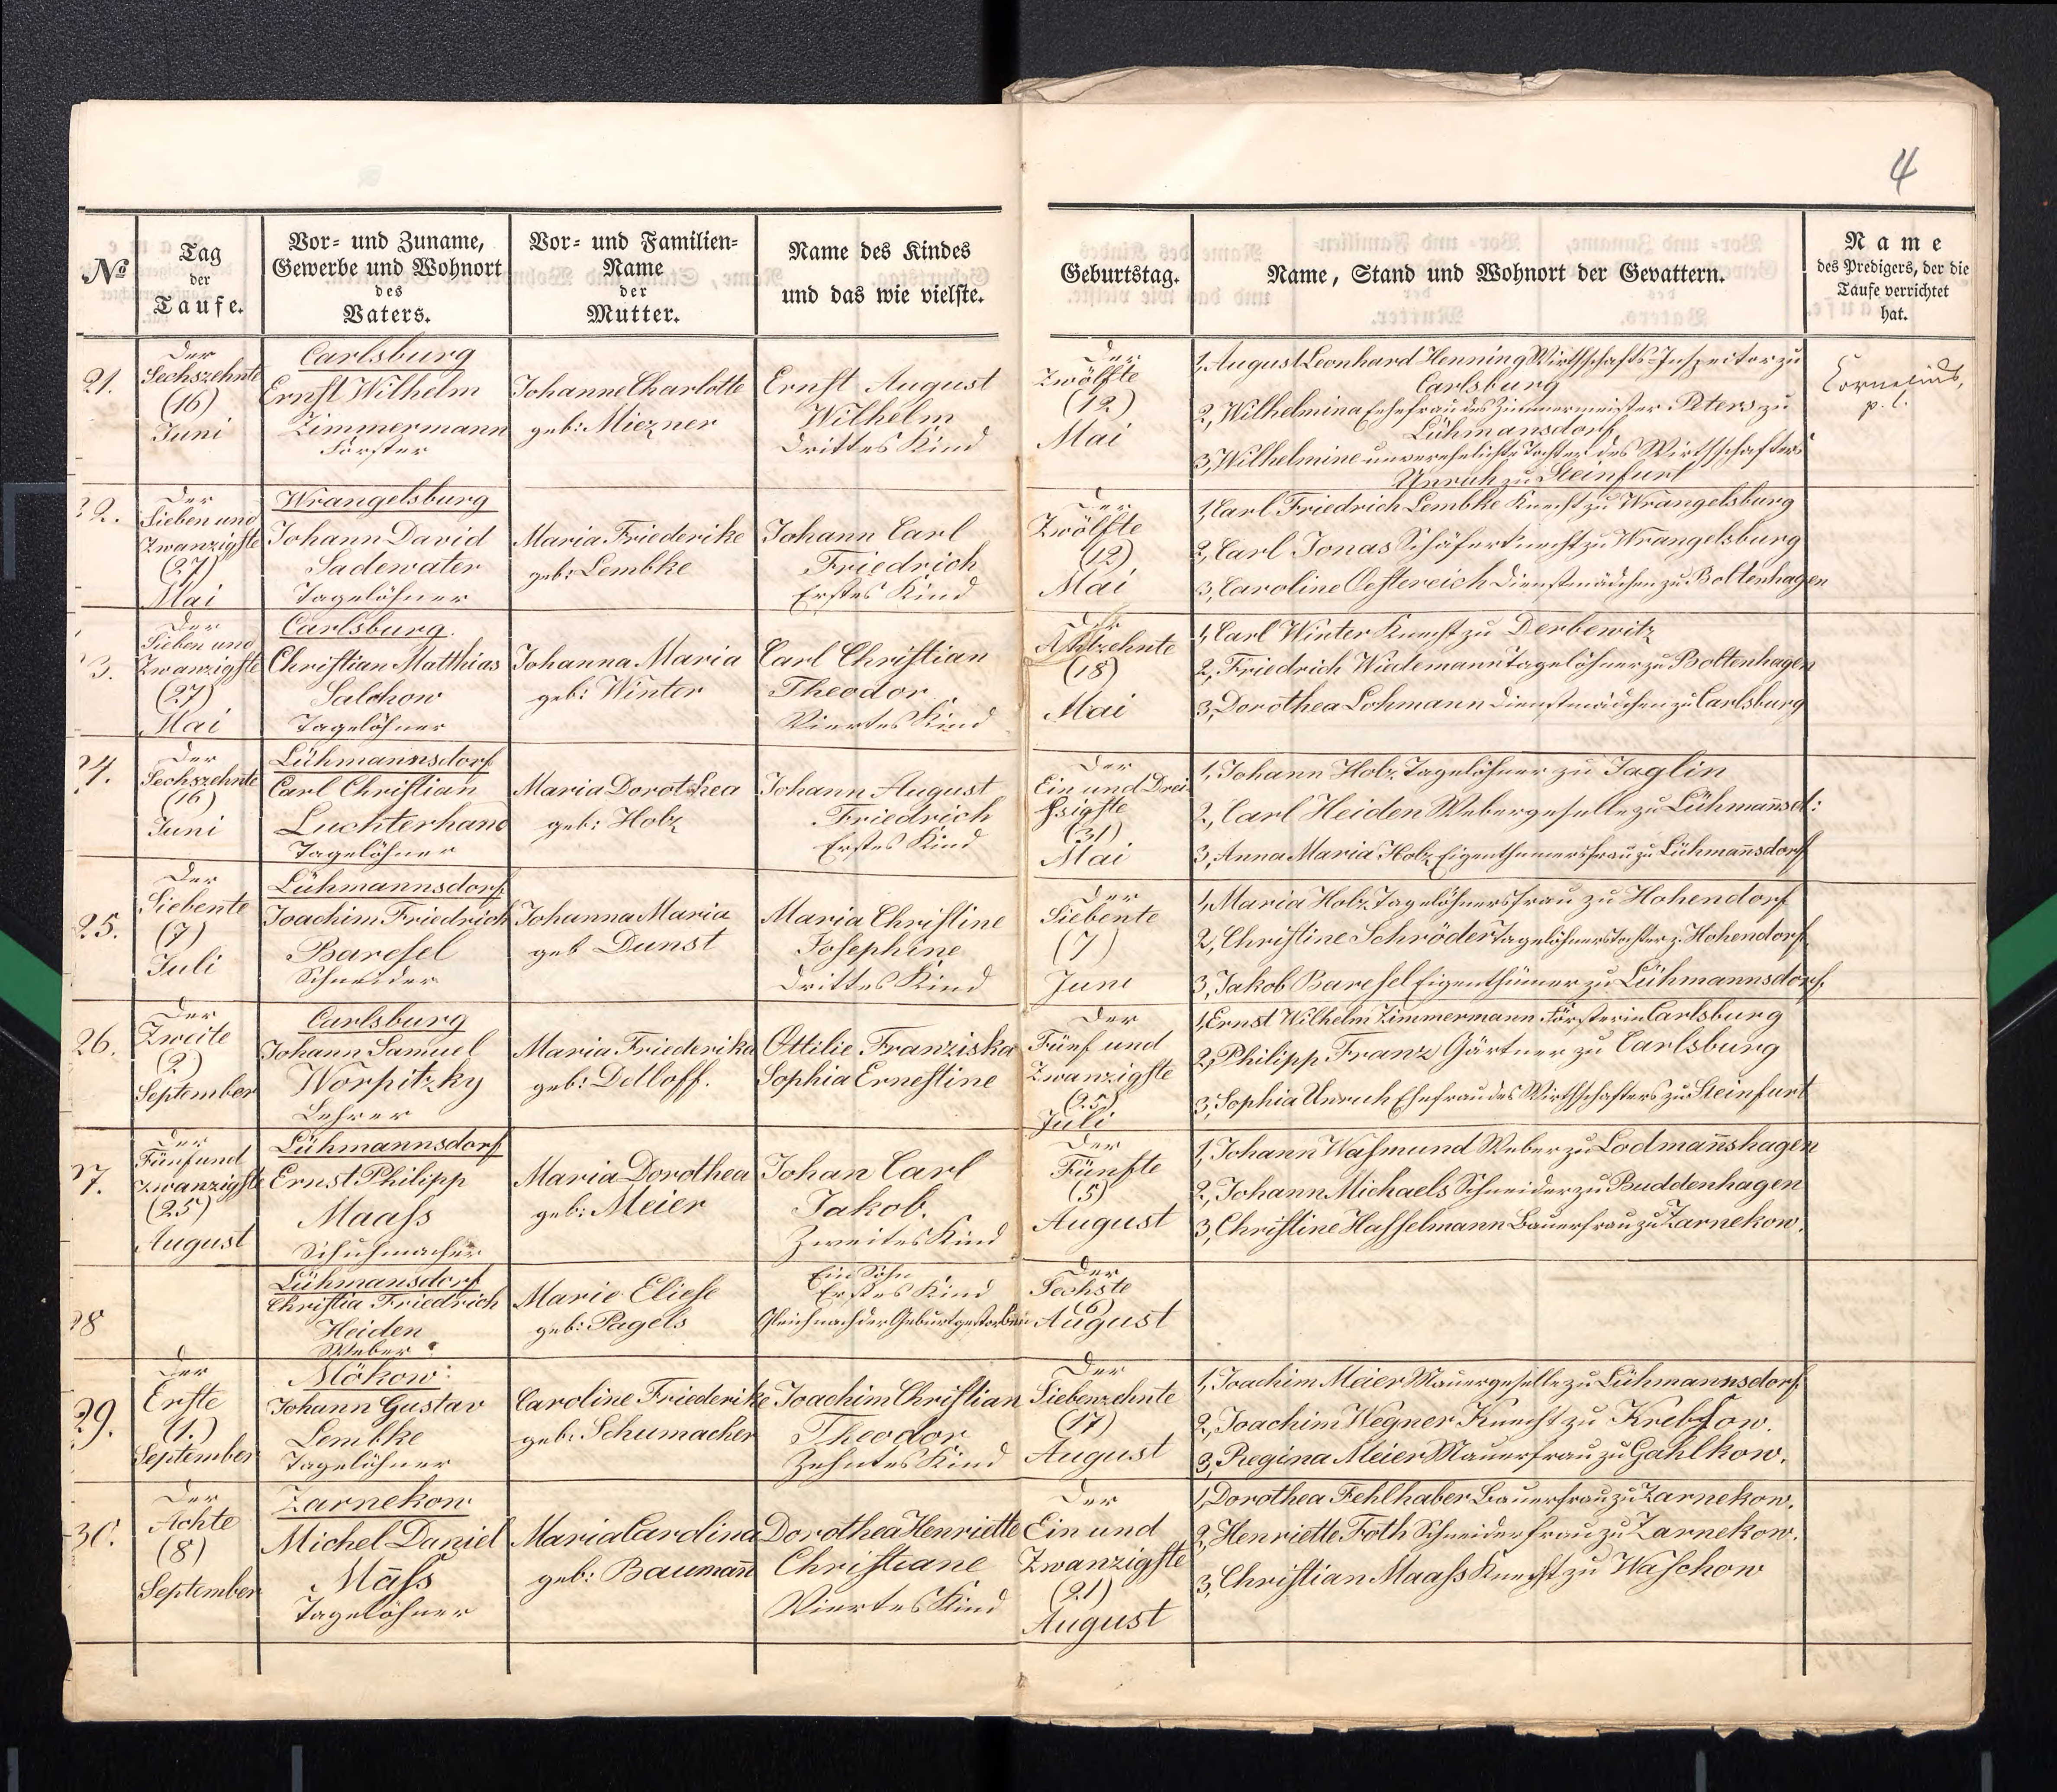 4
№
Tag
der
Taufe.
Vor- und Zuname,
Gewerbe und Wohnort
des
Vaters.
Vor- und Familien-
Name
der
Mutter.
Name des Kindes
und das wie vielste.
Geburtstag.
Name, Stand und Wohnort der Gevattern.
Name
des Predigers, der die
Taufe verrichtet
hat.
21.
Der
Sechszehnte
(16)
Juni
Carlsburg
Ernst Wilhelm
Zimmermann
Förster
Johanne Charlotte
geb: Miezner
Ernst August
Wilhelm
Drittes Kind
Der
Zwölfte
(12)
Mai
1, August Leonhard Henning Wirthschafts-Inspector zu
Carlsburg
2, Wilhelmina Ehefrau des Zimmermeister Peters zu
Lühmansdorf
3, Wilhelmine unverehelichte Tochter des Wirthschafters
Unruh zu Steinfurt
Cornelius,
p. l.
22.
Der
Sieben und
Zwanzigste
(27)
Mai
Wrangelsburg
Johann David
Sadewater
Tagelöhner
Maria Friederike
geb: Lembke
Johann Carl
Friedrich
Erstes Kind
Der
Zwölfte
(12)
Mai
1, Carl Friedrich Lembke Knecht zu Wrangelsburg
2, Carl Jonas Schäferknecht zu Wrangelsburg
3, Caroline Oestereich Dienstmädchen zu Boltenhagen
3.
Der
Sieben und
Zwanzigste
(27)
Mai
Carlsburg.
Christian Matthias
Salchow
Tagelöhner
Johanna Maria
geb: Winter
Carl Christian
Theodor
Viertes Kind
Der
Achtzehnte
(18)
Mai
1, Carl Winter Knecht zu Derbewitz
2, Friedrich Wiedemann Tagelöhner zu Boltenhagen
3, Dorothea Lohmann Dienstmädchen zu Carlsburg
24.
Der
Sechszehnte
(16)
Juni
Lühmannsdorf
Carl Christian
Luchterhand
Tagelöhner
Maria Dorothea
geb: Holz
Johann August
Friedrich
Erstes Kind
Der
Ein und Drei
ssigste
(31)
Mai
1, Johann Holz Tagelöhner zu Jaglin
2, Carl Heiden Webergeselle zu Lühmañsd:
3, Anna Maria Holz Eigenthumersfrau zu Lühmañsdorf
25.
Der
Siebente
(7)
Juli
Lühmannsdorf
Joachim Friedrich
Baresel
Schneider
Johanna Maria
geb Dunst
Maria Christine
Josephine
Drittes Kind
Der
Siebente
(7)
Juni
1, Maria Holz Tagelöhnersfrau zu Hohendorf
2, Christine Schröder Tagelöhnerstochter z. Hohendorf
3, Jakob Baresel Eigenthümer zu Lühmannsdorf
26.
Der
Zweite
(2)
September
Carlsburg
Johann Samuel
Worpitzky
Lehrer
Maria Friederika
geb: Detloff.
Ottilie Franziska
Sophia Ernestine
Der
Fünf und
Zwanzigste
(25)
Juli
1, Ernst Wilhelm Zimmermann Förster in Carlsburg
2, Philipp Franz Gärtner zu Carlsburg
3, Sophia Unruh Ehefrau des Wirthschafters zu Steinfurt
27.
Der
Fünf und
zwanzigste
(25)
August
Lühmannsdorf
Ernst Philipp
Maass
Schuhmacher
Maria Dorothea
geb: Meier
Johan Carl
Jakob.
Zweites Kind
Der
Fünfte
(5)
August
1, Johann Wasmund Weber zu Lodmañshagen
2, Johann Michaels Schneider zu Buddenhagen
3, Christine Hasselmann Bauerfrau zu Zarnekow.
28
Lühmansdorf
Christia Friedrich
Heiden
Weber
Marie Eliese
geb: Pagels
Ein Sohn
Erstes Kind
Gleich nach der Geburt gestorben
Der
Sechste
(6)
August
29.
Der
Erste
(1.)
September
Mökow:
Johann Gustav
Lembke
Tagelöhner
Caroline Friederike
geb: Schumacher
Joachim Christian
Theodor
Zehntes Kind
Der
Siebenzehnte
(17)
August
1, Joachim Meier Mauergeselle zu Lühmannsdorf
2, Joachim Wegner Knecht zu Krebsow.
3, Regina Meier Mauerfrau zu Gahlkow.
30.
Der
Achte
(8)
September
Zarnekow
Michel Daniel
Mass
Tagelöhner
Maria Carolina
geb: Baumañ
Dorothea Henriette
Christiane
Viertes Kind
Der
Ein und
Zwanzigste
(21)
August
1, Dorothea Fehlhaber Bauerfrau zu Zarnekow.
2, Henriette Foth Schneiderfrau zu Zarnekow.
3, Christian Maass Knecht zu Waschow